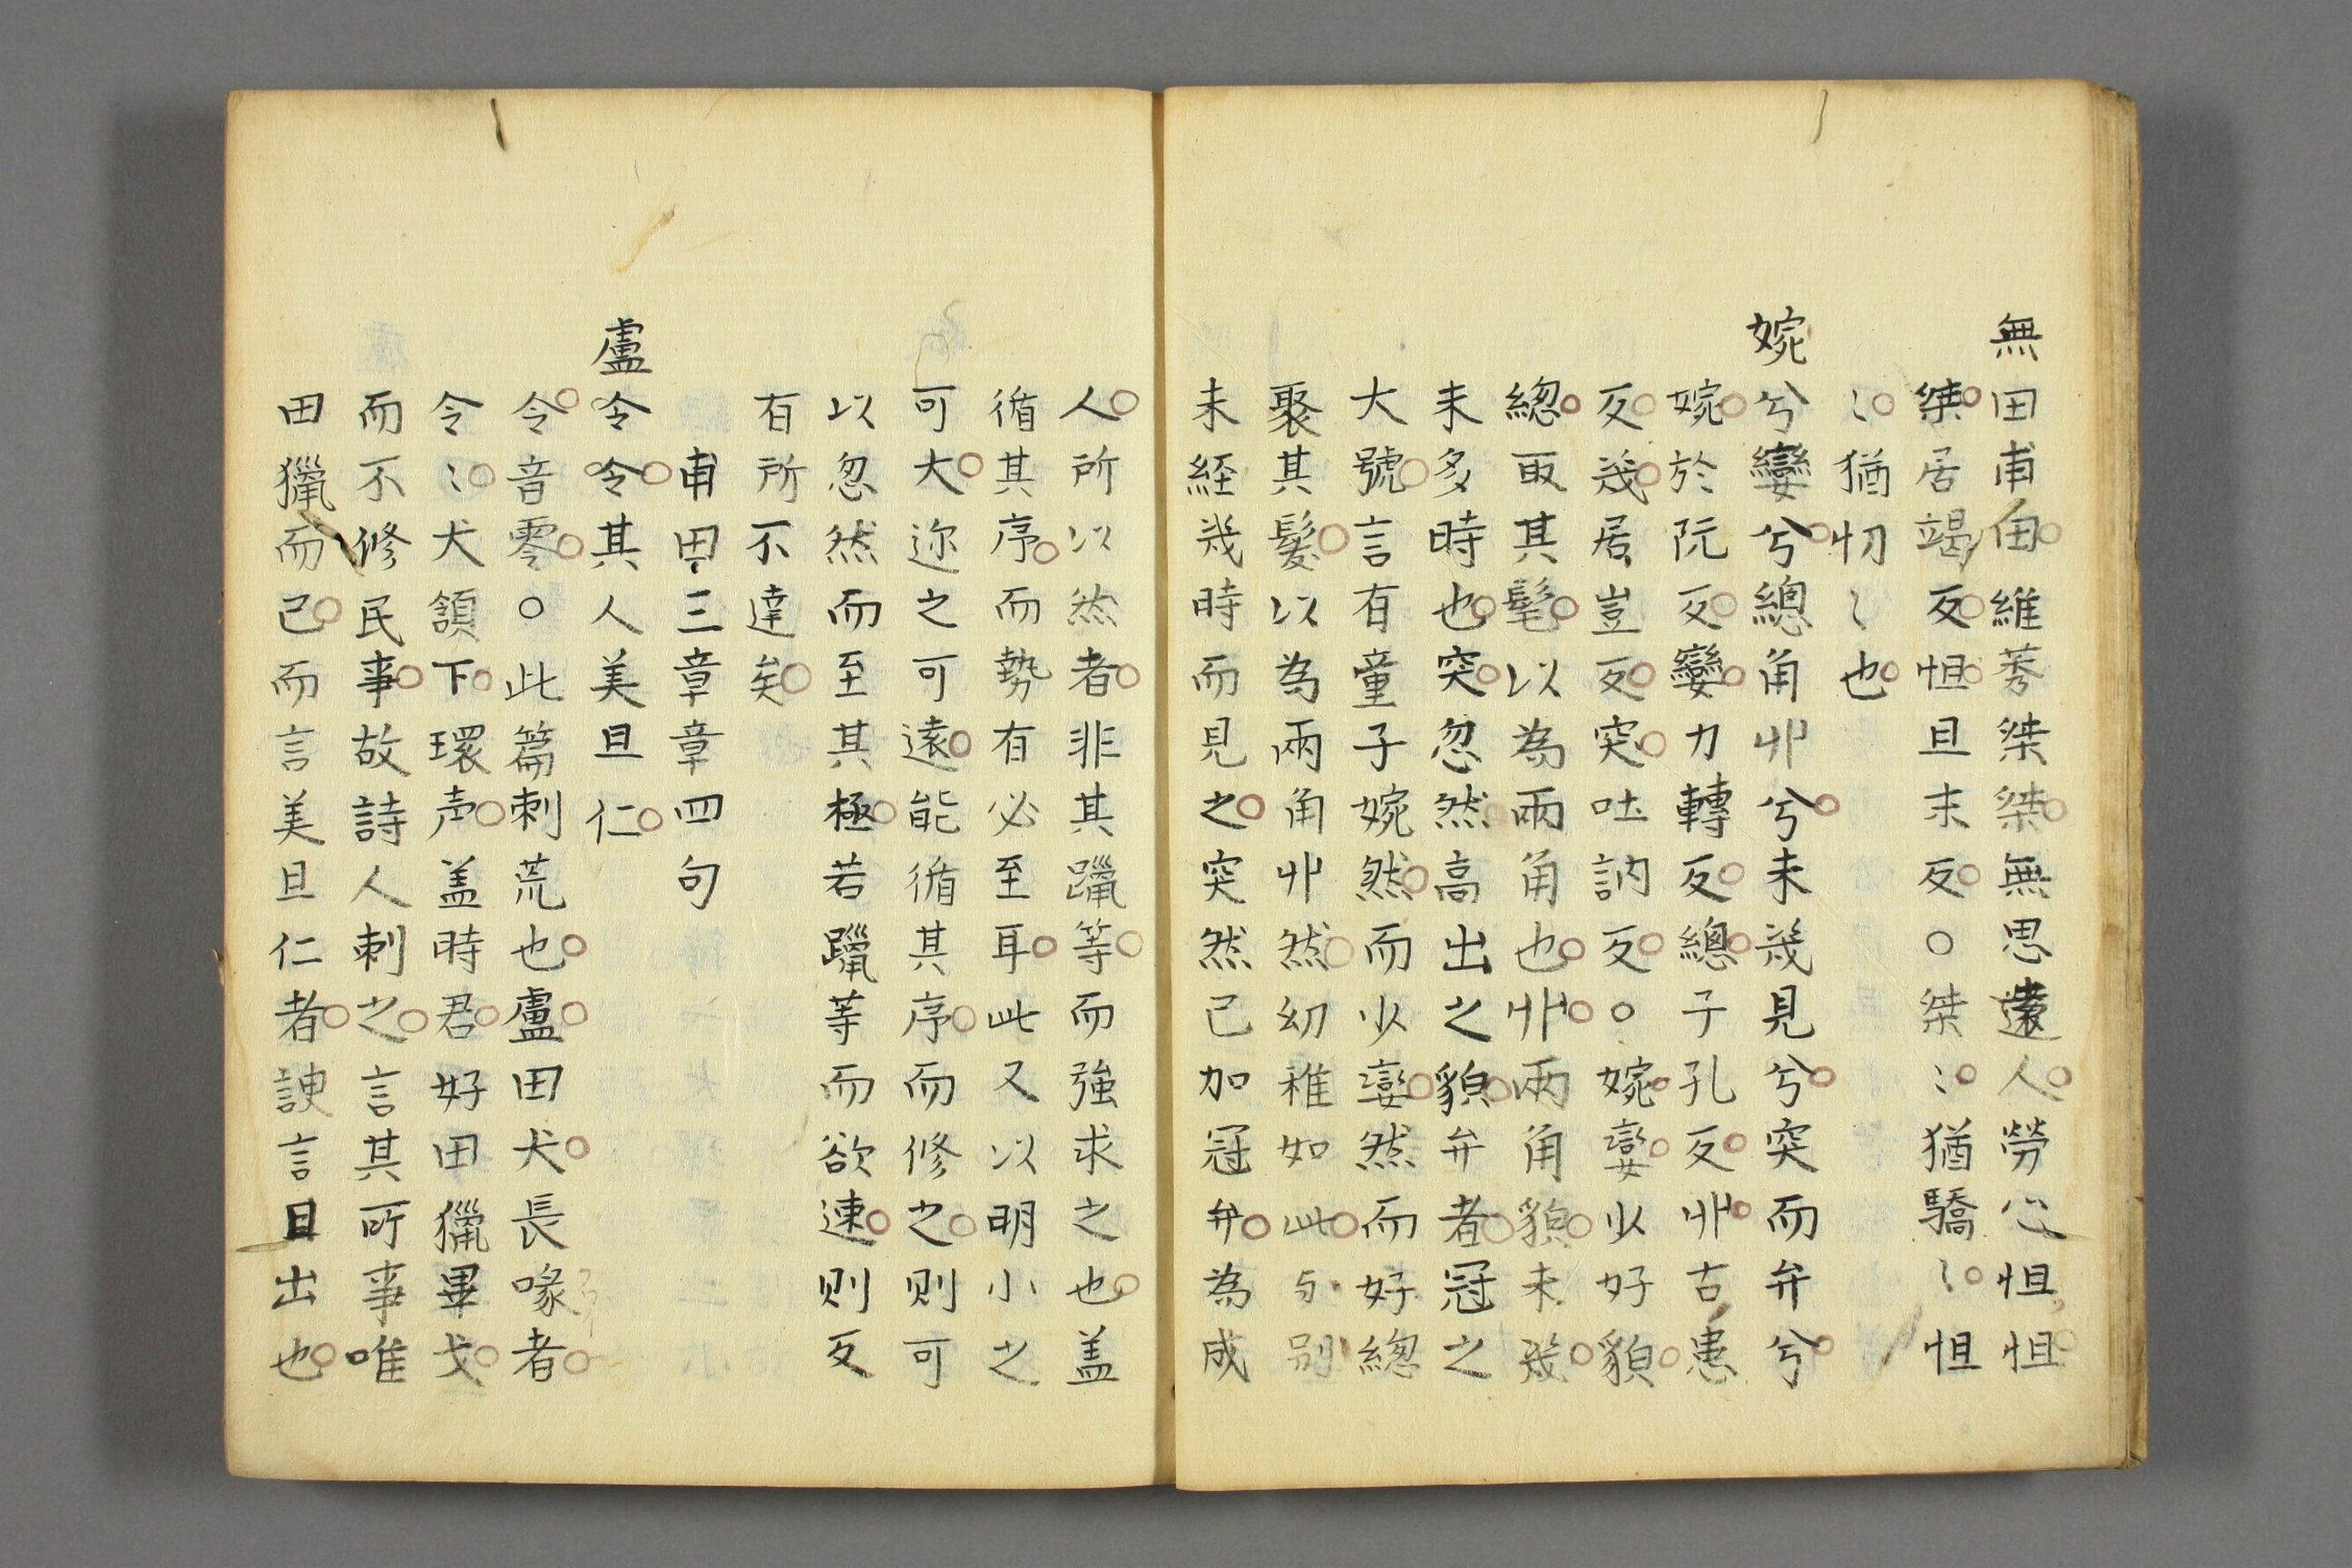 無田甫田維莠桀桀無思遠人勞心怛怛
桀居竭反怛旦末反○桀〻猶驕〻怛
〻猶忉〻也
婉兮孌兮總角丱兮未幾見兮突而弁兮
婉於阮反孌力轉反總子孔反丱古患
反幾居豈反突吐訥反○婉孌少好貌
緫取其髦以為兩角也丱兩角貌未幾
未多時也突忽然高出之貌弁者冠之
大號言有童子婉然而少孌然而好緫
聚其髮以為兩角丱然幼稚如此与別
未経幾時而見之突然已加冠弁為成
人所以然者非其躐等而強求之也盖
循其序而勢有必至耳此又以明小之
可大迩之可遠能循其序而修之則可
以忽然而至其極若躐等而欲速則反
有所不達矣
甫田三章章四句
盧令令其人美且仁
令音零○此篇刺荒也盧田犬長喙者
令〻犬頷下環声盖時君好田獵畢弋
而不修民事故詩人刺之言其所事唯
田獵而已而言美且仁者諛言目出也